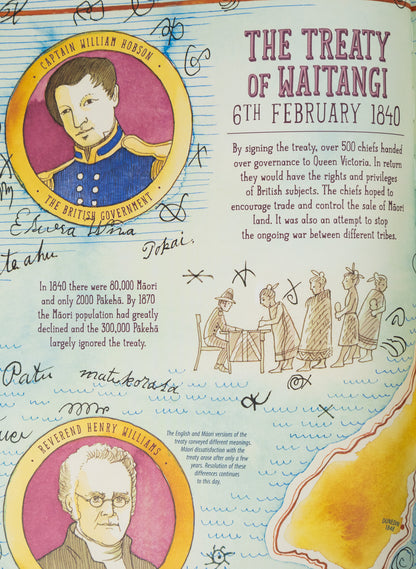 CAPTAIN WILLIAM HOBSON
THE BRITISH GOVERNMENT
THE TREATY
OF WAITANGI
6TH FEBRUARY 1840
By signing the treaty, over 500 chiefs handed
over governance to Queen Victoria. In return
they would have the rights and privileges
of British subjects. The chiefs hoped to
encourage trade and control the sale of Māori
land. It was also an attempt to stop
the ongoing war between different tribes.
Tokai.
In 1840 there were 80,000 Māori
and only 2000 Pākehā. By 1870
the Māori population had greatly
declined and the 300,000 Pākehā
largely ignored the treaty.
Patu
REVEREND HENRY WILLIAMS
The English and Māori versions of the
treaty conveyed different meanings.
Māori dissatisfaction with the
treaty arose after only a few
years. Resolution of these
differences continues
to this day.
DUNEDIN
1848